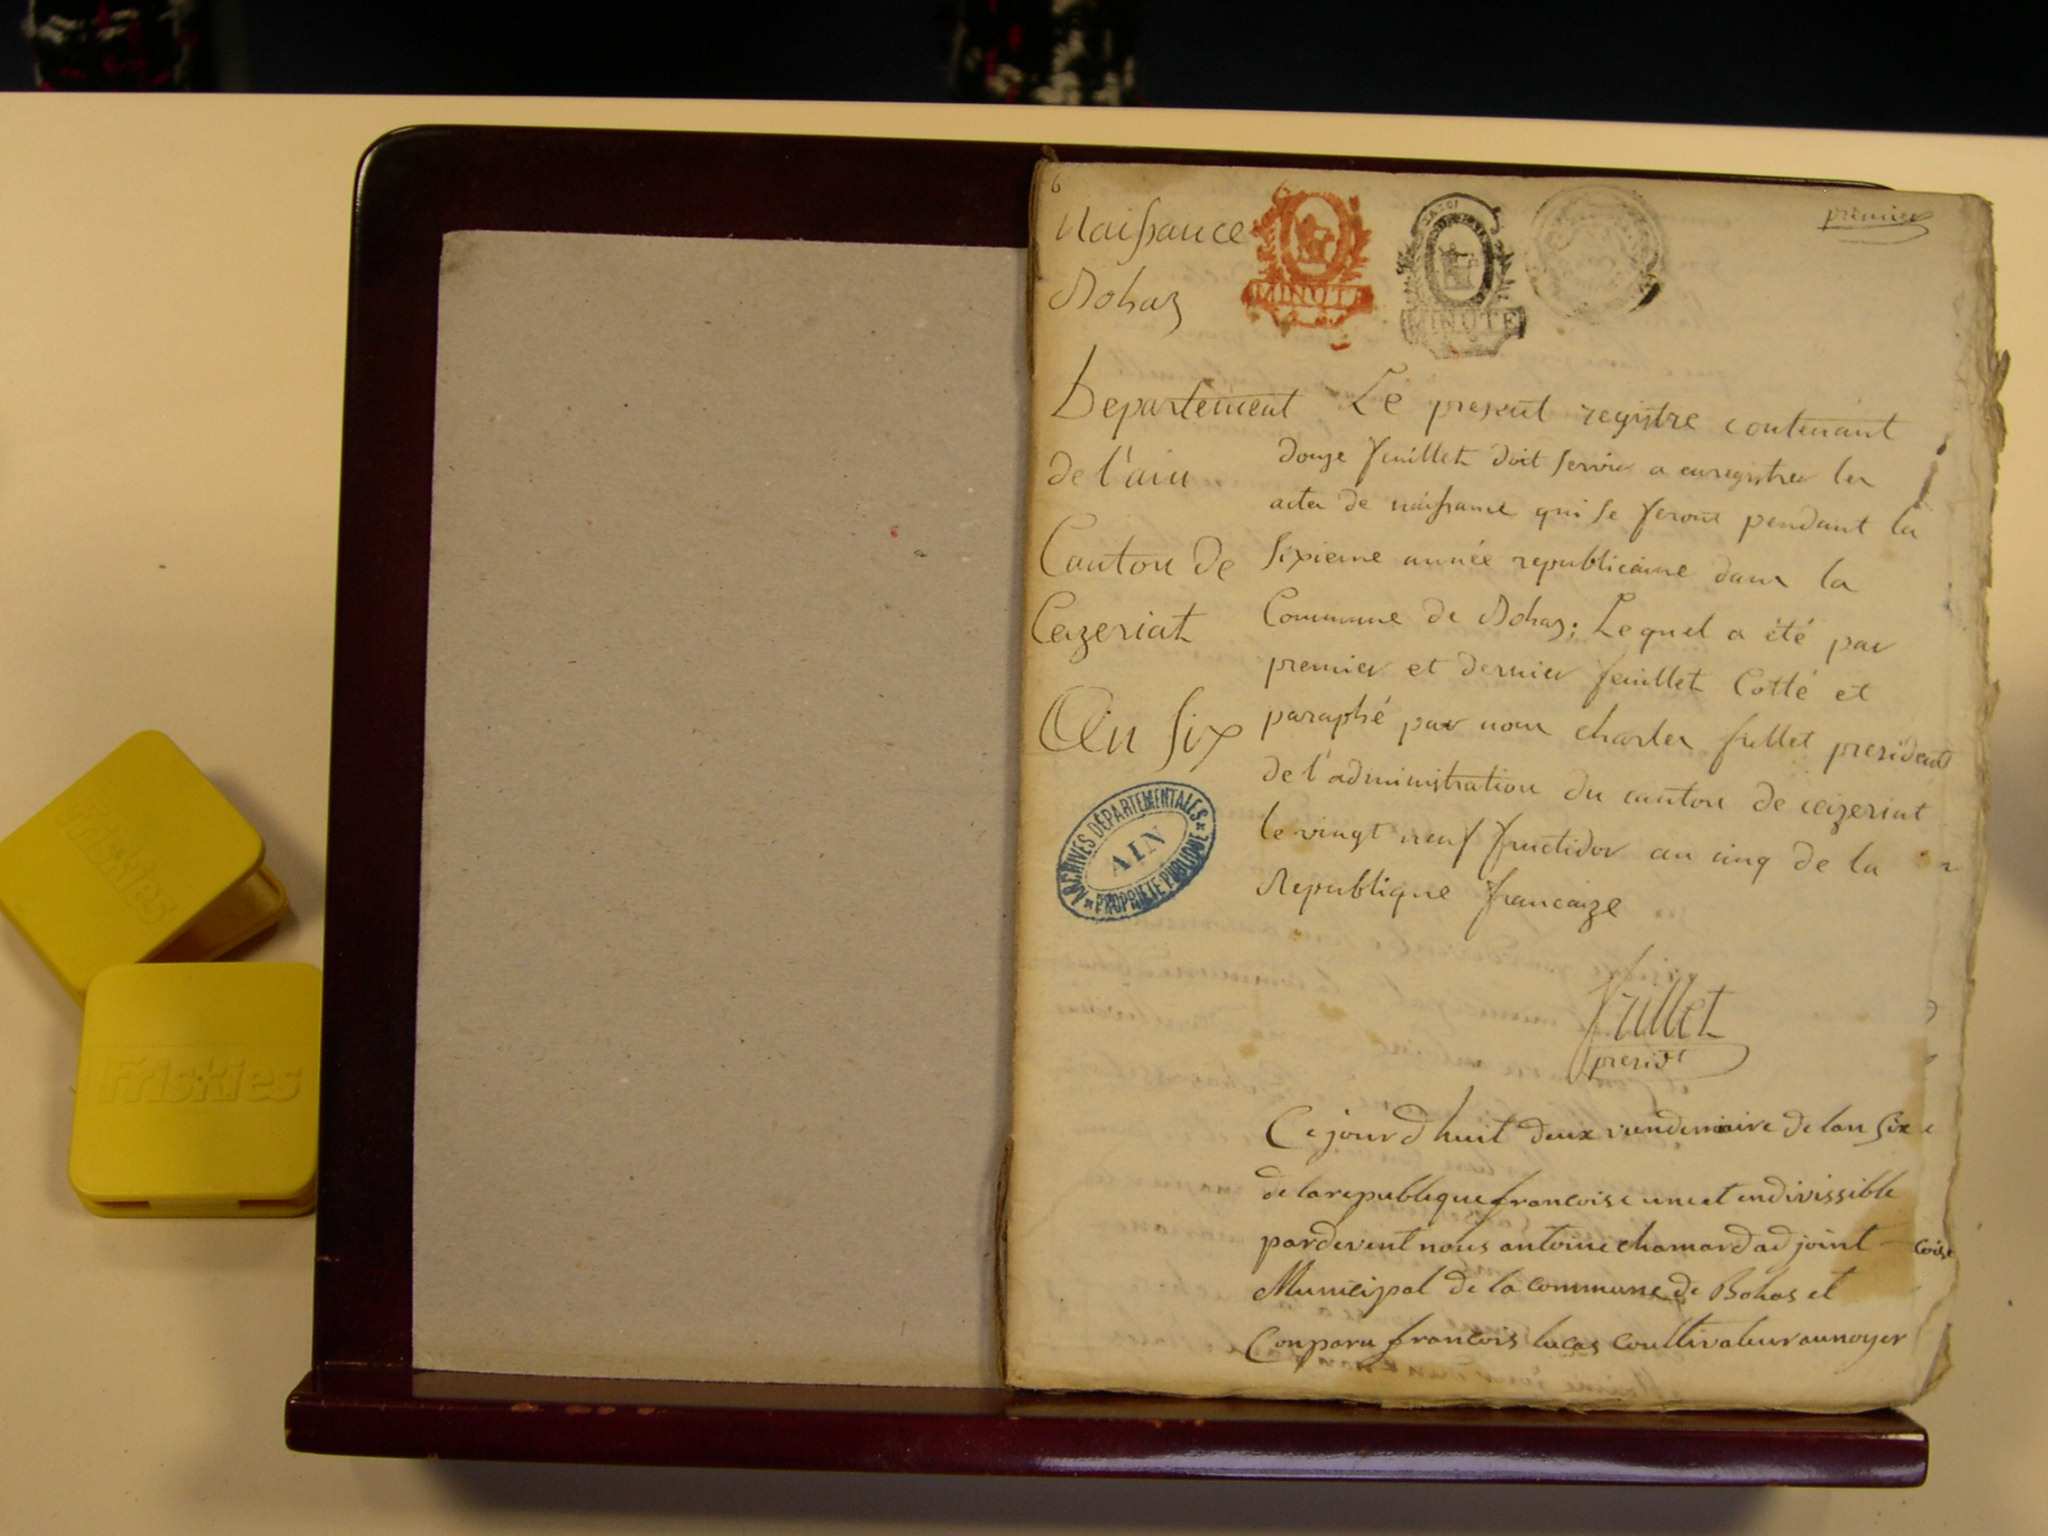 6
Naissance
Bohaz
premier
MINUTE
MINUTE
Departement
de l'ain
Canton de
Cezeriat
An six
ARCHIVES DÉPARTEMENTALES
AIN
PROPRIÉTÉ PUBLIQUE
Le present registre contenant
douze feuillets doit servir a enregistrer les
actes de naissance qui se feront pendant la
sixieme année republicaine dans la
Commune de Bohaz; Lequel a été par
premier et dernier feuillet Cotté et
paraphé par nous charles frillet president
de l'administration du canton de ceizeriat
le vingt neuf fructidor an cinq de la
Republique francaize
frillet
presidt
Cejourdhuit deux vendemiaire de lan six
de la republeque francoise une et endivissible
pardevent nous antoine chamard adjoint
Municipal de la commune de Bohas et
Conparu francois lucas coultivateur au noyer
Friskies
Friskies